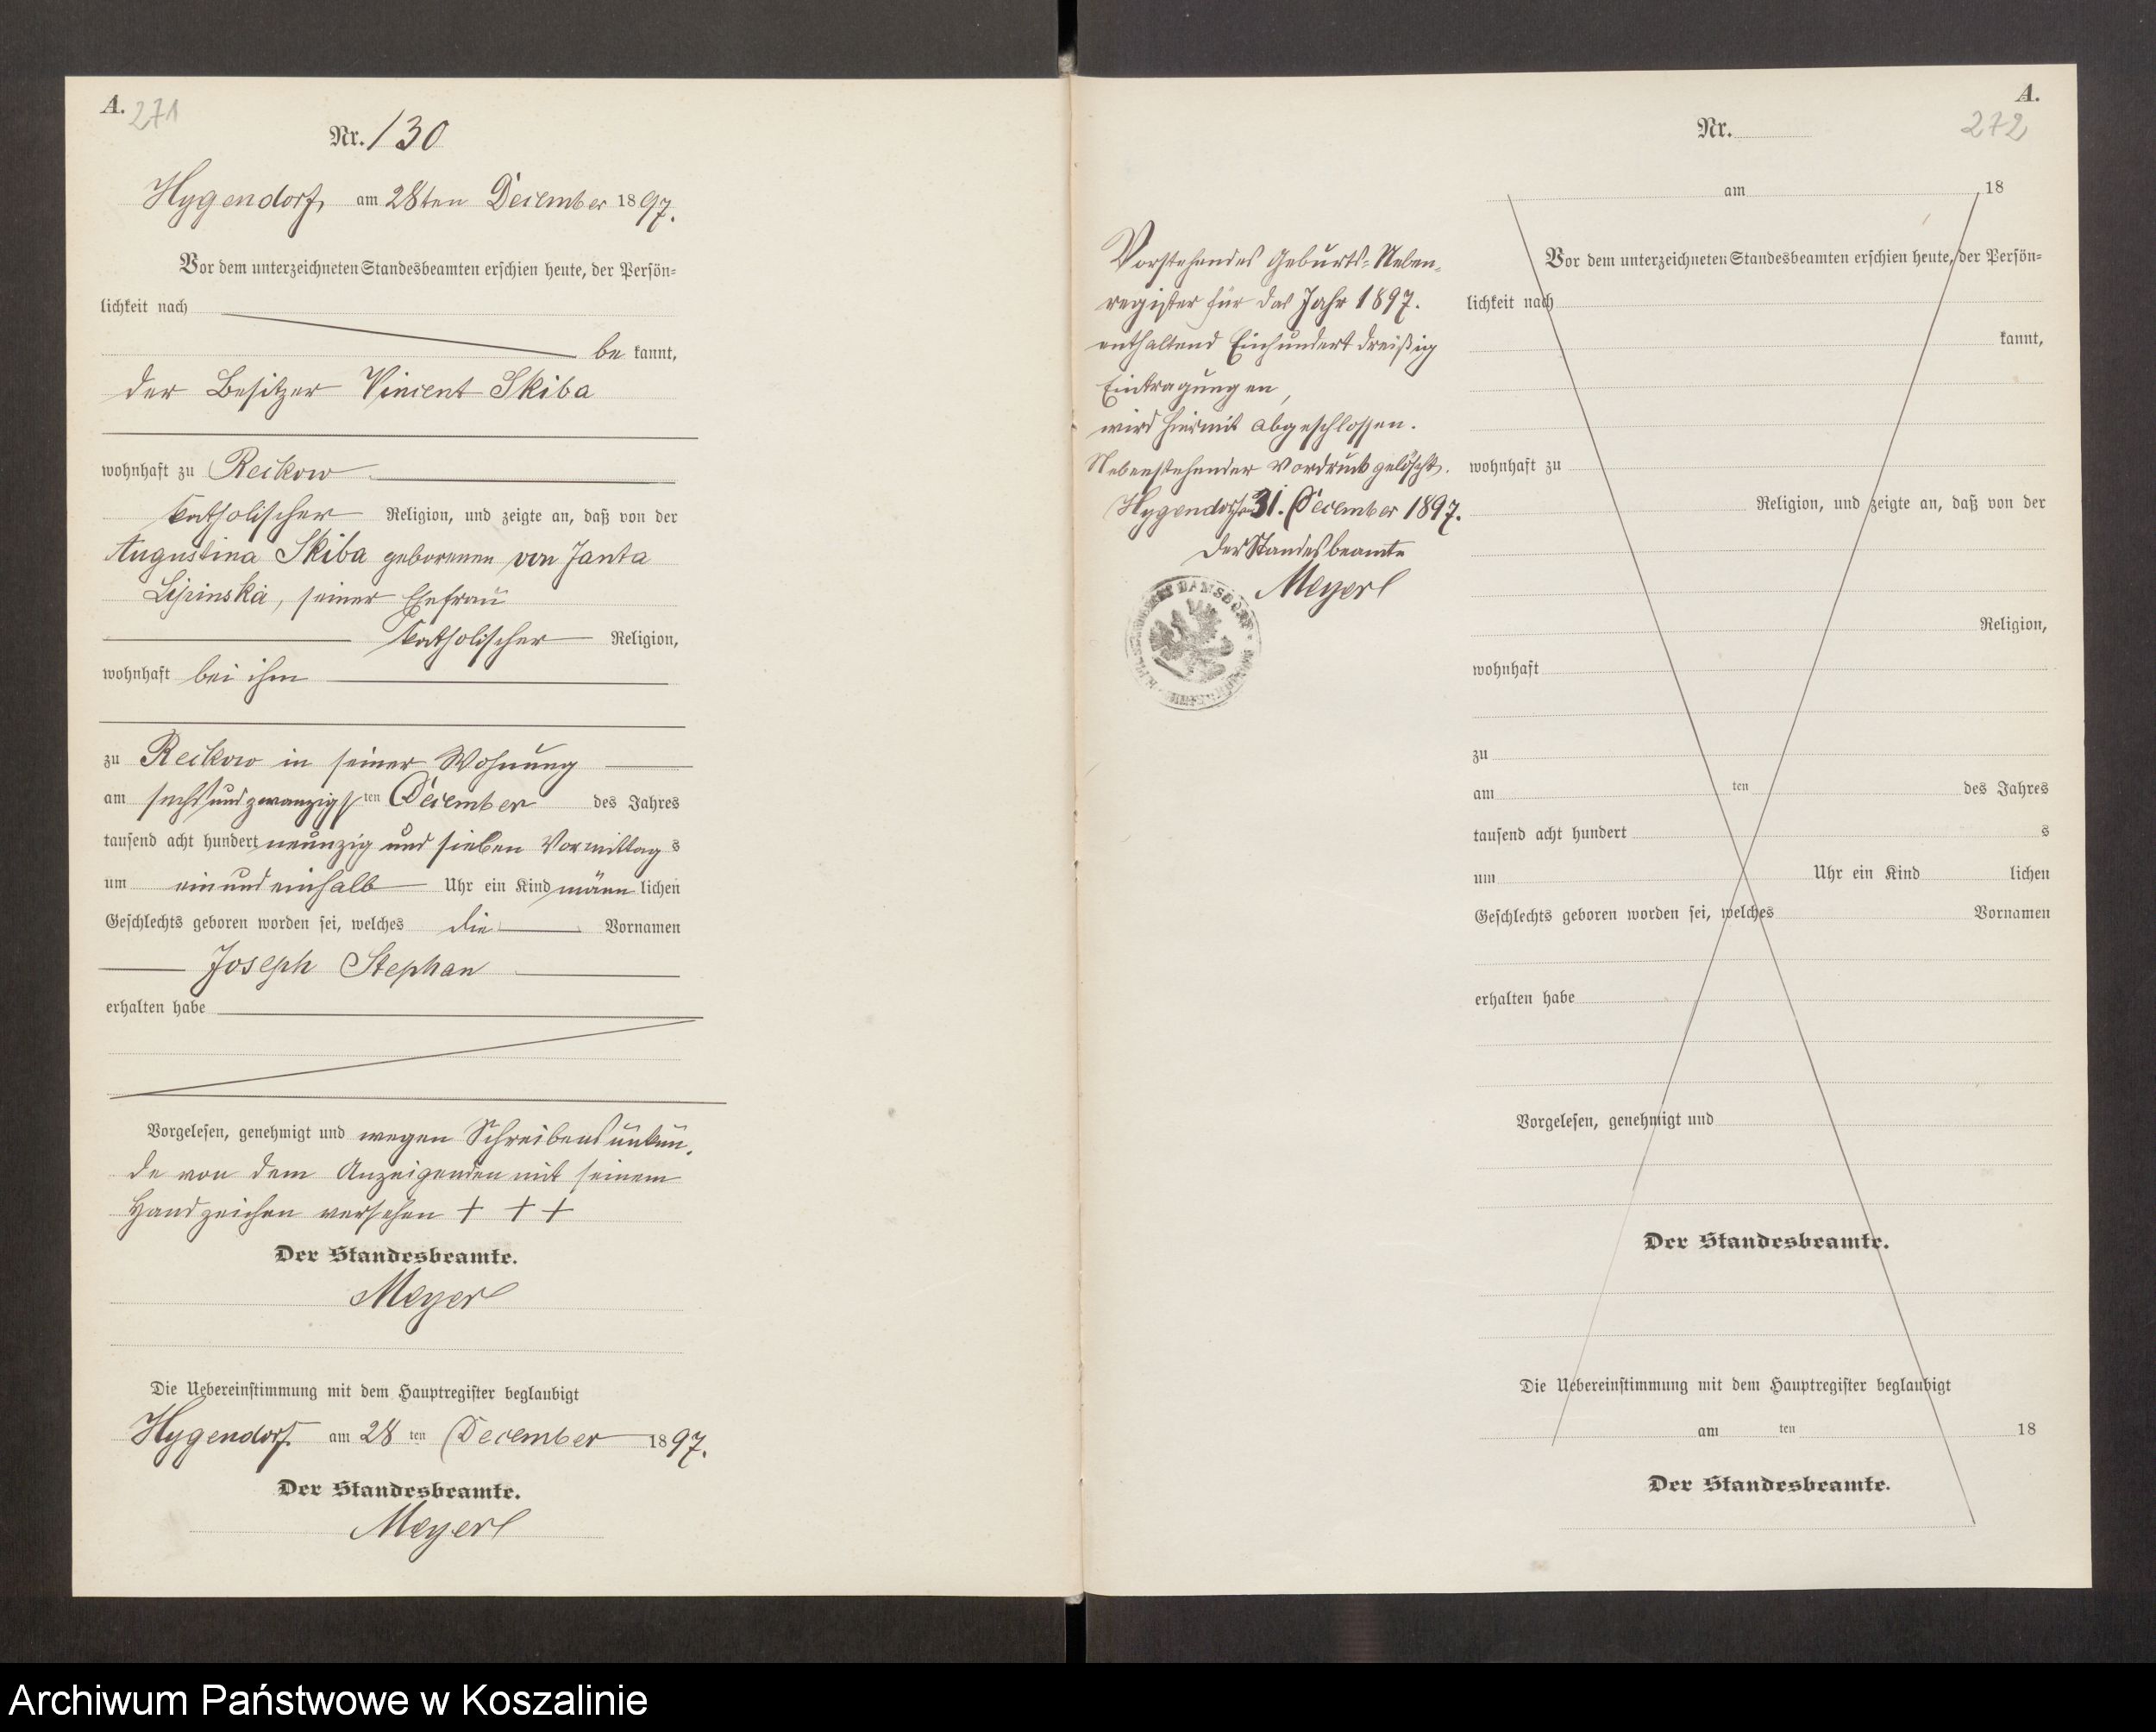 A.
271
Nr. 130
Hygendorf, am 28ten December 1897.
Vor dem unterzeichneten Standesbeamten erschien heute, der Persön-
lichkeit nach
be kannt,
der Besitzer Vincent Skiba
wohnhaft zu Reckow
katholischer Religion, und zeigte an, daß von der
Augustina Skiba geborenen von Janta
Lipinska, seiner Ehefrau
katholischer Religion,
wohnhaft bei ihm
zu Reckow in seiner Wohnung
am sechsundzwanzigsten December des Jahres
tausend acht hundert neunzig und sieben Vormittag s
um ein und einhalb Uhr ein Kind männ lichen
Geschlechts geboren worden sei, welches die Vornamen
Joseph Stephan
erhalten habe
Vorgelesen, genehmigt und wegen Schreibensunkun-
de von dem Anzeigenden mit seinem
Handzeichen versehen + + +
Der Standesbeamte.
Meyer
Die Uebereinstimmung mit dem Hauptregister beglaubigt
Hygendorf am 28 ten December 1897.
Der Standesbeamte.
Meyer
Vorstehendes Geburts-Neben-
register für das Jahr 1897.
enthaltend Einhundert dreißig
Eintragungen,
wird hiermit abgeschlossen.
Nebenstehender Vordruck gelöscht.
Hygendorf 31. December 1897.
Der Standesbeamte
Meyer
A.
272
Nr.
am 18
Vor dem unterzeichneten Standesbeamten erschien heute, der Persön-
lichkeit nach
kannt,
wohnhaft zu
Religion, und zeigte an, daß von der
Religion,
wohnhaft
zu
am ten des Jahres
tausend acht hundert s
um Uhr ein Kind lichen
Geschlechts geboren worden sei, welches Vornamen
erhalten habe
Vorgelesen, genehmigt und
Der Standesbeamte.
Die Uebereinstimmung mit dem Hauptregister beglaubigt
am ten 18
Der Standesbeamte.
Archiwum Państwowe w Koszalinie